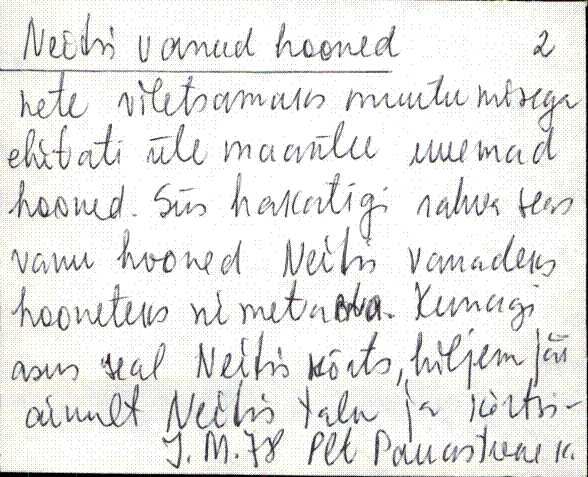 Neitsi vanad hooned 2
nete viletsamaks muutumisega
ehitati üle maantee uuemad
hooned. Siis hakatigi rahva seas
vanu hooned Neitsi vanadeks
hooneteks nimetama. Kunagi
asus seal Neitsi kõrts, hiljem jäi
ainult Neitsi talu ja kõrtsi-
J. M. 78 Plt